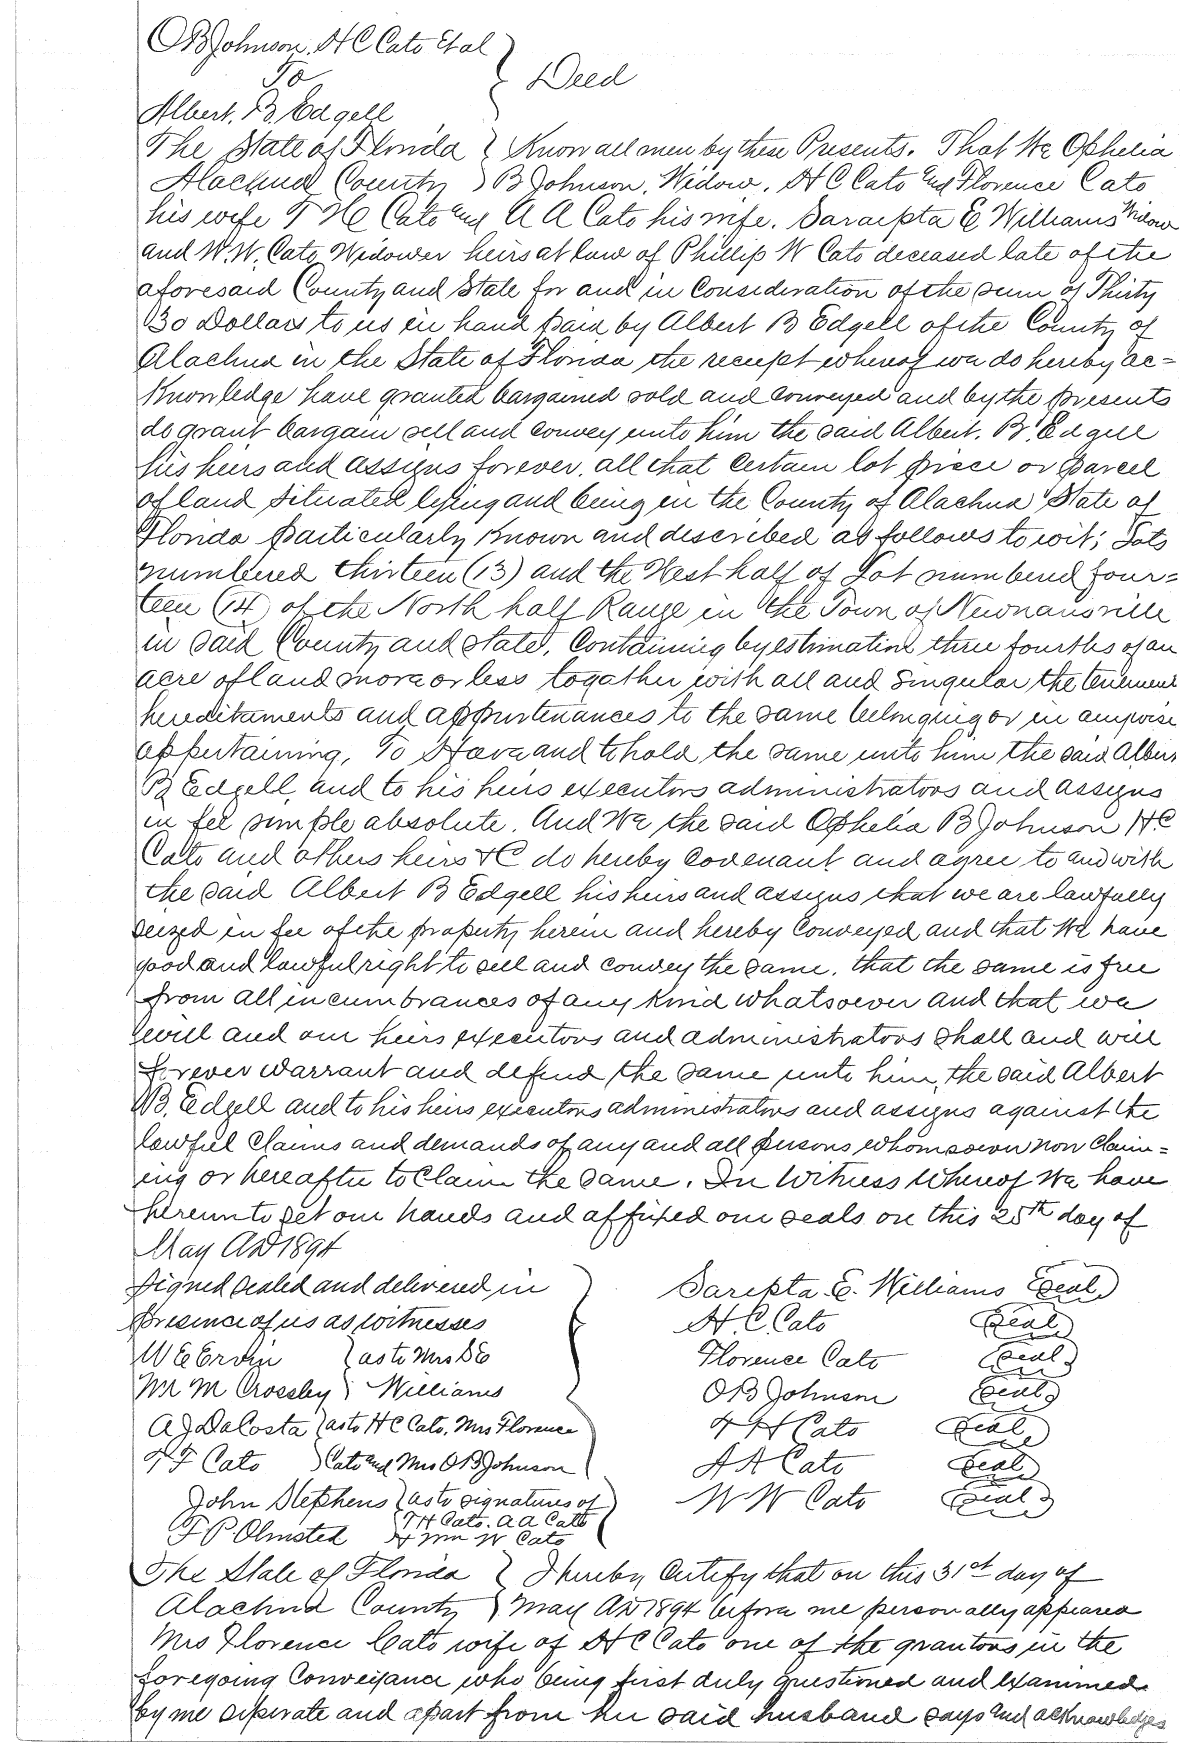 O B Johnson, H C Cato Et al
To } Deed
Albert. B. Edgell
The State of Florida } Know all men by these Presents. That We Ophelia
Alachua County } B Johnson, Widow, H C Cato and Florence Cato
his wife T H Cato and A A Cato his wife. Sarapta E Williams Widow
and W. W. Cato Widower heirs at law of Phillip W Cato deceased late of the
aforesaid County and State for and in Consideration of the sum of Thirty
30 Dollars to us in hand paid by Albert B Edgell of the County of
Alachua in the State of Florida the receipt whereof we do hereby ac=
knowledge have granted bargained sold and conveyed and by the presents
do grant bargain sell and convey unto him the said Albert. B. Edgell
his heirs and assigns forever. all that certain lot piece or parcel
of land situated lying and being in the County of Alachua State of
Florida particularly known and described as follows to wit; Lots
numbered thirteen (13) and the West half of Lot numbered four=
teen (14) of the North half Range in the Town of Newnansville
in said County and State, Containing by estimation three fourths of an
acre of land more or less together with all and singular the tenement
hereditaments and appurtenances to the same belonging or in anywise
appertaining, To Have and to hold the same unto him the said Albert
B Edgell, and to his heirs executors administrators and assigns
in fee simple absolute. And We the said Ophelia B Johnson H C
Cato and others heirs &C do hereby covenant and agree to and with
the said Albert B Edgell his heirs and assigns that we are lawfully
seized in fee of the property herein and hereby Conveyed and that We have
good and lawful right to sell and convey the same. that the same is free
from all incumbrances of any kind whatsoever and that we
will and our heirs executors and administrators shall and will
forever warrant and defend the same unto him, the said Albert
B. Edgell and to his heirs executors administrators and assigns against the
lawful claims and demands of any and all persons whomsoever now claim=
ing or hereafter to Claim the same. In Witness Whereof We have
hereunto set our hands and affixed our seals on this 25th day of
May AD 1894
Signed sealed and delivered in } Sarepta E. Williams Seal
presence of us as witnesses H. C. Cato Seal
W E Ervin } as to Mrs S E Florence Cato Seal
M M Crossby } Williams O B Johnson Seal
A J DaCosta } as to H C Cato, Mrs Florence T H Cato Seal
T F Cato } Cato and Mrs O B Johnson A A Cato Seal
John Stephens } as to signatures of W W Cato Seal
T H Cato. A A Cato
F P Olmsted & Wm W Cato
The State of Florida } I hereby Certify that on this 31st day of
Alachua County } May AD 1894 before me personally appeared
Mrs Florence Cato wife of H C Cato one of the grantors in the
foregoing Conveyance who being first duly questioned and examined
by me seperate and apart from her said husband says and acknowledges